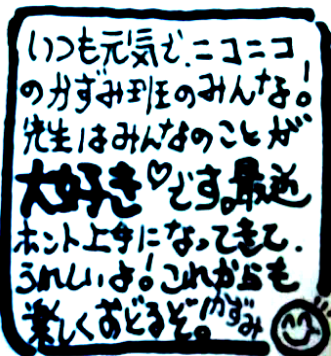 いつも元気で、ニコニコ
のかずみ班のみんな!
先生はみんなのことが
大好き♡です。最近
ホント上手になってきて、
うれしいよ!これからも
楽しくおどるぞ。かずみ